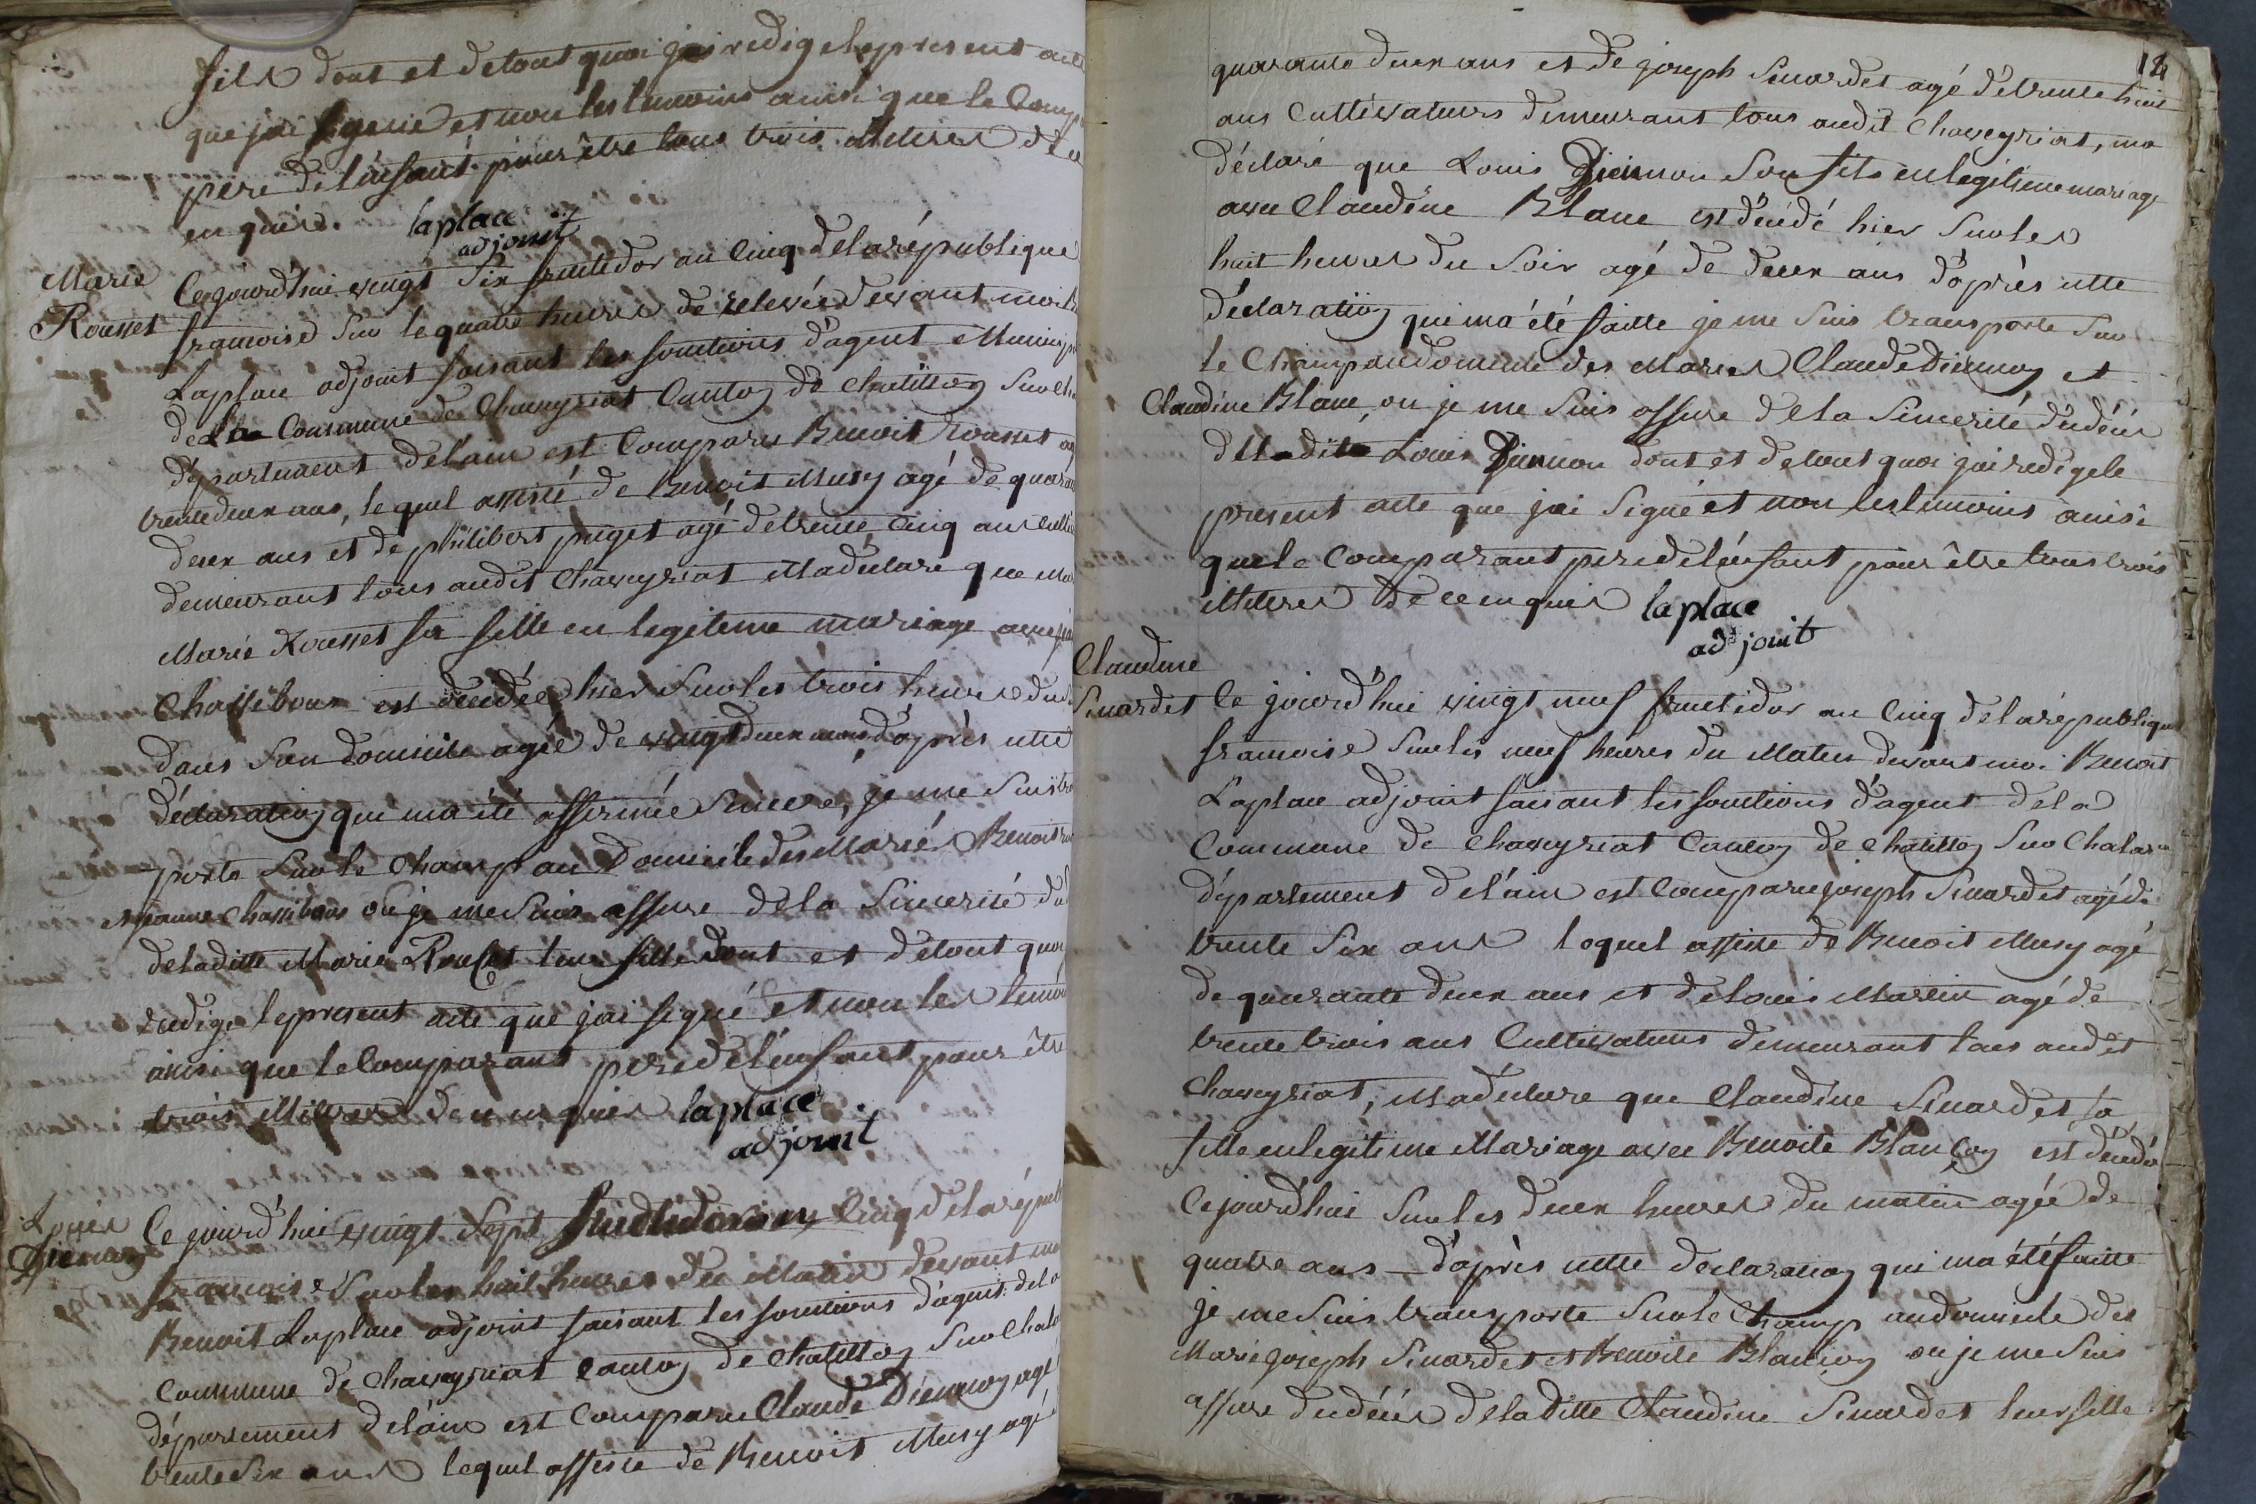 fils dont et detout quoi jai redige lepresent acte
que jai signé et non les temoins ainsi que le Comp
pere de lénfant pour être tous trois illiteres de ce
enquis. laplace
adjoint
Marie
Rousset
Cejourdhui vingt six fructidor an Cinq delarépublique
francoise sur lequatre heures de relevée devant moi B
Laplace adjoint faisant les fonctions d'agent Municip
dela Commune de Chaveyriat Canton de Chatillon sur Cha
département delain est Comparu Benoit Rousset ag
trente deux ans, lequel assisté de Benoit Musy agé de quaran
deux ans et de philibert puget agé detrente Cinq ans culti
demeurant tous audit Chaveyriat Madéclaré que
Marie Rousset sa fille en legitime mariage avec
Chassibour est décédée hier sur les trois heures du
dans son domicile agée de vingt deux d'après cette
déclaration qui ma été affirmée sincere, je me suis tr
porte sur le champ au domicile des Mariés Benoit
et jeanne Chassibour ou je me suis assure dela sincerité du
deladitte Marie Rousset leur fille dont et detout quoi
redige lepresent acte que jai signé et non les temoi
ainsi que le Comparant pere delénfant pour être
trois illiteres de ce enquis laplace
adjoint
Louis
Diennon
Ce jourd'hui vingt sept fructidor an Cinq delarépub
francoise sur les huit heures du Matin devant mo
Benoit Laplace adjoint faisant les fonctions d'agent dela
Commune de Chaveyriat Canton de Chatillon sur Chala
département delain est Comparu Claude Diennon agé
trente six ans lequel assisté de Benoit Musy agé
quarante deux ans et de joseph Sinardet agé detrente huit
ans Cultivateurs demeurant tous audit Chaveyriat, ma
déclaré que Louis Diennon son fils en legitime mariage
avec Claudine Blanc est décédé hier sur les
huit heures du soir agé de deux ans d'après cette
déclaration qui ma été faitte je me suis transporte sur
le Champ audomicile des Maries Claude Diennon et
Claudine Blanc, ou je me suis assure dela sincerité dudécés
dudit Louis Diennon dont et detout quoi jai redigé le
present acte que jai signé et non les temoins ainsi
quele Comparant pere delénfant pour être tous trois
illiteres de ce enquis laplace
adjoint
Claudine
Sinardet
Ce jourd'hui vingt neuf fructidor an Cinq delarépublique
francoise sur les neuf heures du Matin devant moi Benoit
Laplace adjoint faisant les fonctions d'agent dela
Commune de Chaveyriat Canton de Chatillon sur Chala
département delain est Comparu joseph Sinardet agé de
trente six ans lequel assisté de Benoit Musy agé
de quarante deux ans et de Louis Martin agé de
trente trois ans Cultivateurs demeurant tous audit
Chaveyriat, Madéclare que Claudine Sinardet sa
fille enlegitime Mariage avec Benoite Blancon est décédé
Cejourdhui sur les deux heures du matin agée de
quatre ans d'après cette declaration qui ma été faitte
je me suis transporte sur le Champ audomicile des
Marie joseph Sinardet et Benoite Blancon ou je me suis
assure dudécés deladitte Claudine Sinardet leur fille